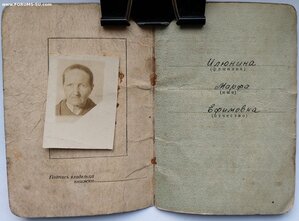 © www.FORUMS-SU.com
Илюнина
(фамилия)
Марфа
(имя)
Ефимовна
(отчество)
Подпись владельца
книжки